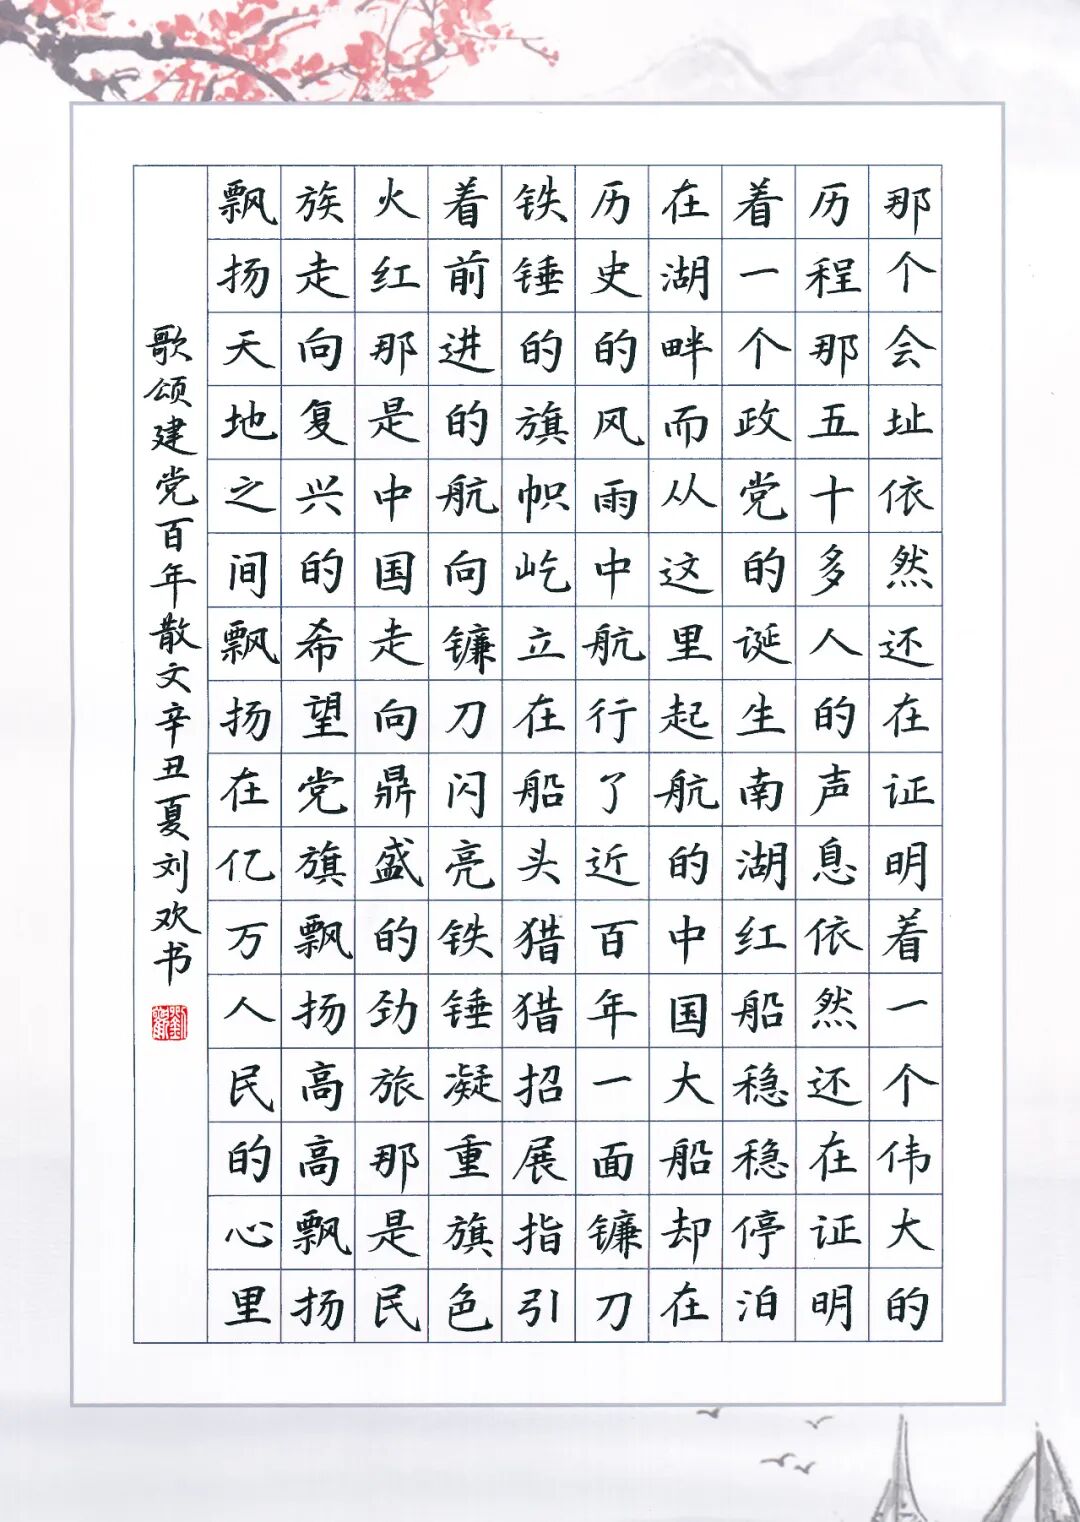 那个会址依然还在证明着一个伟大的
历程那五十多人的声息依然还在证明
着一个政党的诞生南湖红船稳稳停泊
在湖畔而从这里起航的中国大船却在
历史的风雨中航行了近百年一面镰刀
铁锤的旗帜屹立在船头猎猎招展指引
着前进的航向镰刀闪亮铁锤凝重旗色
火红那是中国走向鼎盛的劲旅那是民
族走向复兴的希望党旗飘扬高高飘扬
飘扬天地之间飘扬在亿万人民的心里
歌颂建党百年散文辛丑夏刘欢书